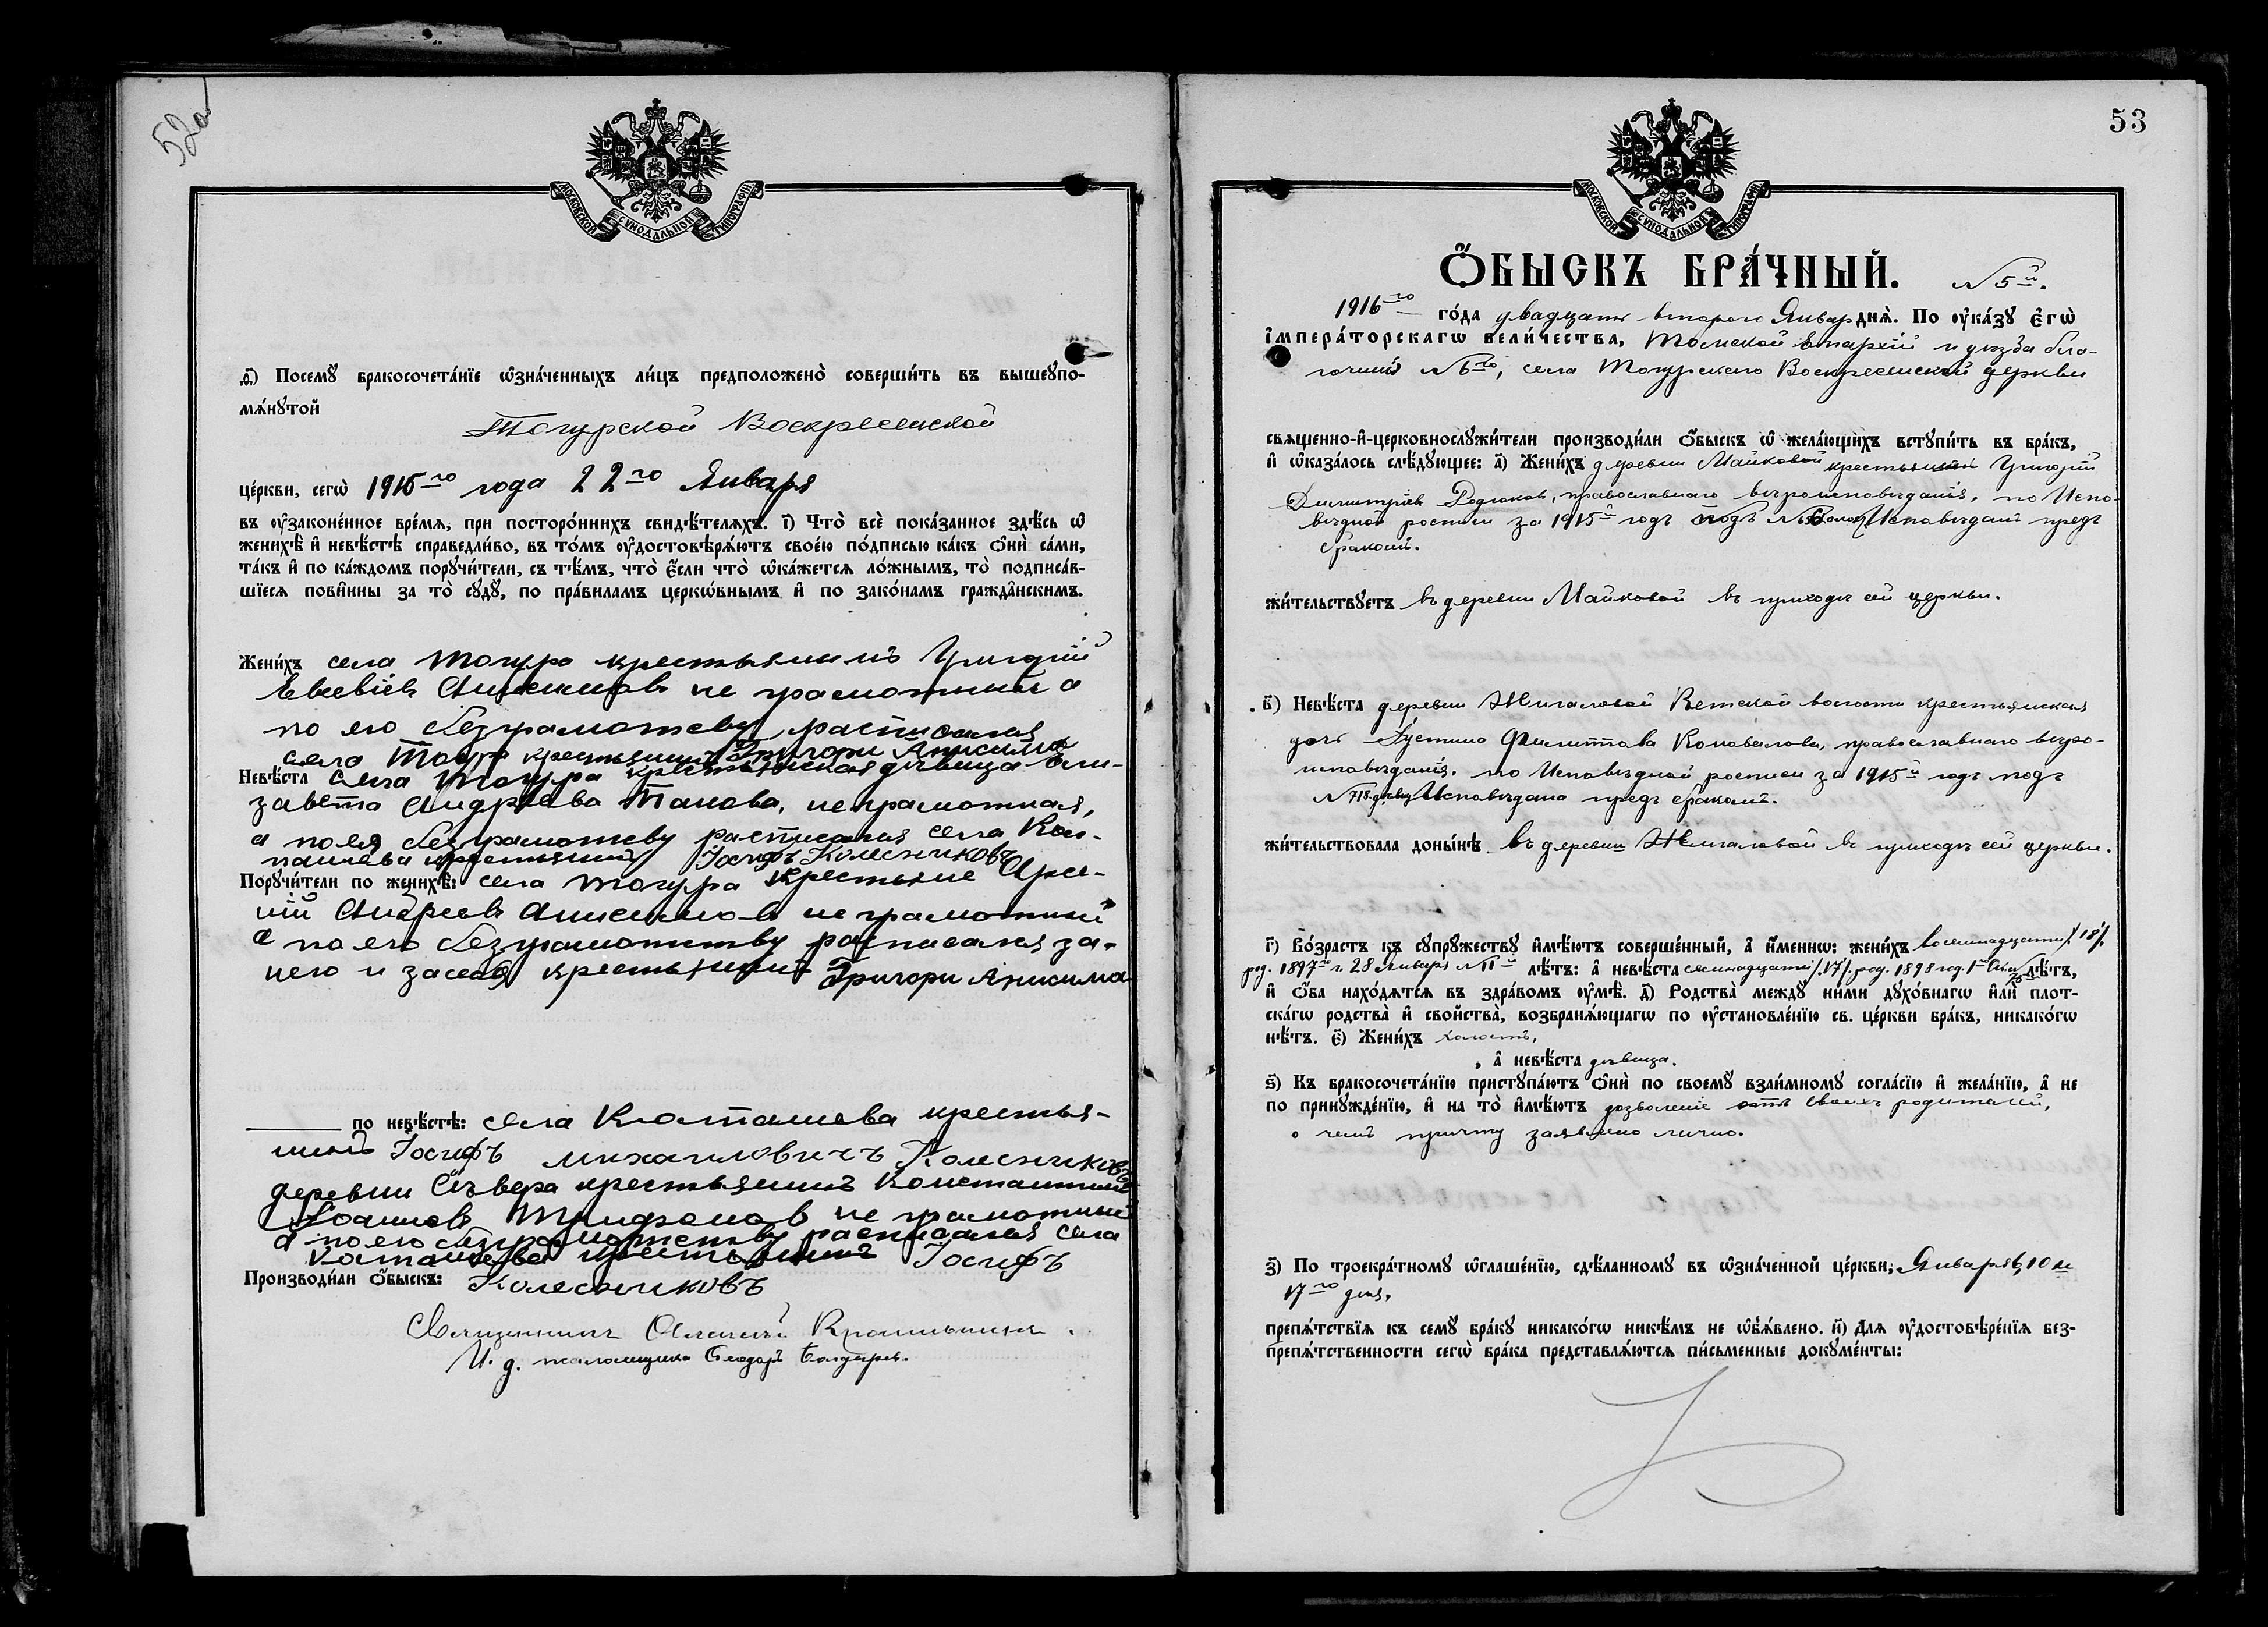 52а
МОСКОВСКОЙ СѴНОДАЛЬНОЙ ТИПОГРАФІИ
ѳ҃) Посемꙋ̀ бракосочета́нїе ѡ҆зна́ченныхъ ли́цъ предположено̀ соверши́ть въ вышеꙋпо-
мѧ́нꙋтой
Тогурской Воскресенской
це́ркви, сегѡ̀ 1916го года 22го Января
въ ᲂу҆законе́нное вре́мѧ, при посторо́ннихъ свидѣ́телѧхъ. і҃) Что̀ всѐ пока́занное здѣ́сь ѡ҆
женихѣ̀ и҆ невѣ́стѣ справедли́во, въ то́мъ ᲂу҆достовѣрѧ́ютъ свое́ю по́дписью ка́къ ѻ҆нѝ са́ми,
та́къ и҆ по ка́ждомъ порꙋчи́тели, съ тѣ́мъ, что̀ є҆́сли что̀ ѡ҆ка́жетсѧ ло́жнымъ, то̀ подписа́в-
шїесѧ пови́нны за то̀ сꙋдꙋ̀, по пра́виламъ церкѡ́внымъ и҆ по зако́намъ гражда́нскимъ.
Жени́хъ села Тогура крестьянинъ Григорій
Евсевіевъ Анисимовъ не грамотный а
по его безграмотству расписался
села Тогура крестьянинъ Григори Анисимо
Невѣ́ста села Тогура крестьянская дѣвица Ели-
завета Андреева Панова, неграмотная,
а по ея безграмотству расписался села Кол-
пашева крестьянинъ Іосифъ Колесниковъ
Порꙋчи́тели по женихѣ̀: села Тогура крестьяне Арсе-
ній Андреевъ Анисимовъ не грамотный
а по его безграмотству расписался за-
него и за себя крестьянинъ Григори Анисимо
по невѣ́стѣ: села Колпашева крестья-
нинъ Іосифъ Михаиловичъ Колесниковъ
деревни Сѣвера крестьянинъ Константинъ
Іоанновъ Трифоновъ не грамотный
а по его безграмотству расписался села
Колпашева крестьянинъ Іосифъ
Производи́ли ѻ҆́быскъ: Колесниковъ
Священникъ
И. д. псаломщика Ѳеодоръ
53
МОСКОВСКОЙ СѴНОДАЛЬНОЙ ТИПОГРАФІИ
Ѻ҆́БЫСКЪ БРА́ЧНЫЙ. № 5й.
1916го го́да двадцать второго Января днѧ̀. По ᲂу҆ка́зꙋ є҆гѡ̀
і҆мпера́торскагѡ вели́чества, Томской Епархіи и уѣзда бла-
гочинія № 6го, села Тогурскаго Воскресенской церкви
свѧщенно-и҆-церковнослꙋжи́тели производи́ли ѻ҆́быскъ ѡ҆ жела́ющихъ встꙋпи́ть въ бра́къ,
и҆ ѡ҆каза́лось слѣ́дꙋющее: а҃) Жени́хъ деревни Майковой крестьянинъ Григорій
Димитріевъ Родюковъ, православнаго вѣроисповѣданія, по Испо-
вѣдной росписи за 1915й годъ подъ № Исповѣданъ предъ
бракомъ.
жи́тельствꙋетъ въ деревни Майковой въ приходѣ сей церкви.
в҃) Невѣ́ста деревни Жигаловой Кетской волости крестьянская
дочь Іустина Филиппова Коновалова, православнаго вѣро-
исповѣданія. по Исповѣдной росписи за 1915й годъ подъ
№ 718. дѣвиц Исповѣдана предъ бракомъ.
жи́тельствовала доны́нѣ въ деревни Жигаловой въ приходѣ сей церкви.
г҃) Во́зрастъ къ сꙋпрꙋ́жествꙋ и҆мѣ́ютъ соверше́нный, а҆ и҆́меннѡ: жени́хъ восемнадцати /18/.
род. 1897го г. 28 Января № 11й лѣ́тъ: а҆ невѣ́ста семнадцати /17/. род. 1898 год. лѣ́тъ,
и҆ ѻ҆́ба нахо́дѧтсѧ въ здра́вомъ ᲂу҆мѣ̀. д҃) Родства̀ междꙋ̀ ни́ми дꙋхо́внагѡ и҆лѝ плот-
ска́гѡ родства̀ и҆ свойства̀, возбранѧ́ющагѡ по ᲂу҆становле́нїю св. це́ркви бра́къ, никако́гѡ
нѣ́тъ. є҃) Жени́хъ холостъ,
, а҆ невѣ́ста дѣвица.
ѕ҃) Къ бракосочета́нїю пристꙋпа́ютъ ѻ҆нѝ по своемꙋ̀ взаи́мномꙋ согла́сїю и҆ жела́нїю, а҆ не
по принꙋжде́нїю, и҆ на то̀ и҆мѣ́ютъ дозволеніе отъ своихъ родителей,
о чемъ причту заявлено лично.
з҃) По троекра́тномꙋ ѡ҆глаше́нїю, сдѣ́ланномꙋ въ ѡ҆зна́ченной це́ркви; Января 6, 10 и
17го дня.
препѧ́тствїѧ къ семꙋ̀ бра́кꙋ никако́гѡ никѣ́мъ не ѡ҆б̾ѧ́влено. и҃) Длѧ ᲂу҆достовѣре́нїѧ без-
препѧ́тственности сегѡ̀ бра́ка представлѧ́ютсѧ пи́сьменные докꙋме́нты: